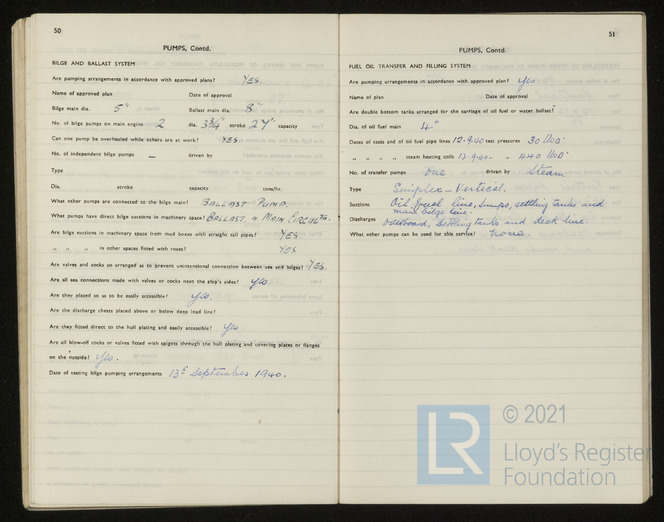 50
PUMPS, Contd.
BILGE AND BALLAST SYSTEM
Are pumping arrangements in accordance with approved plans? YES.
Name of approved plan Date of approval
Bilge main dia. 5" Ballast main dia. 8"
No. of bilge pumps on main engine 2 dia. 3¾" stroke 27" capacity
Can one pump be overhauled while others are at work? YES.
No. of independent bilge pumps — driven by
Type
Dia. stroke capacity tons/hr.
What other pumps are connected to the bilge main? BALLAST PUMP.
What pumps have direct bilge suctions in machinery space? BALLAST. & MAIN CIRCULTG.
Are bilge suctions in machinery space from mud boxes with straight tail pipes? YES.
„ „ „ in other spaces fitted with roses? YES
Are valves and cocks so arranged as to prevent unintentional connection between sea and bilges? YES.
Are all sea connections made with valves or cocks next the ship's sides? yes.
Are they placed so as to be easily accessible? yes.
Are the discharge chests placed above or below deep load line?
Are they fitted direct to the hull plating and easily accessible? yes
Are all blow-off cocks or valves fitted with spigots through the hull plating and covering plates or flanges
on the outside? yes.
Date of testing bilge pumping arrangements 13th September 1940.
51
PUMPS, Contd
FUEL OIL TRANSFER AND FILLING SYSTEM
Are pumping arrangements in accordance with approved plan? yes
Name of plan Date of approval
Are double bottom tanks arranged for the carriage of oil fuel or water ballast?
Dia. of oil fuel main 4"
Dates of tests and of oil fuel pipe lines 12-9-40 test pressures 30
„ „ „ „ steam heating coils 12-9-40. „ 440
No. of transfer pumps one driven by Steam
Type Simplex - Vertical.
Suctions Oil fuel line, sumps, settling tanks and
main bilge line.
Discharges overboard, settling tanks and deck line.
What other pumps can be used for this service? None.
LR
© 2021
Lloyd's Register
Foundation